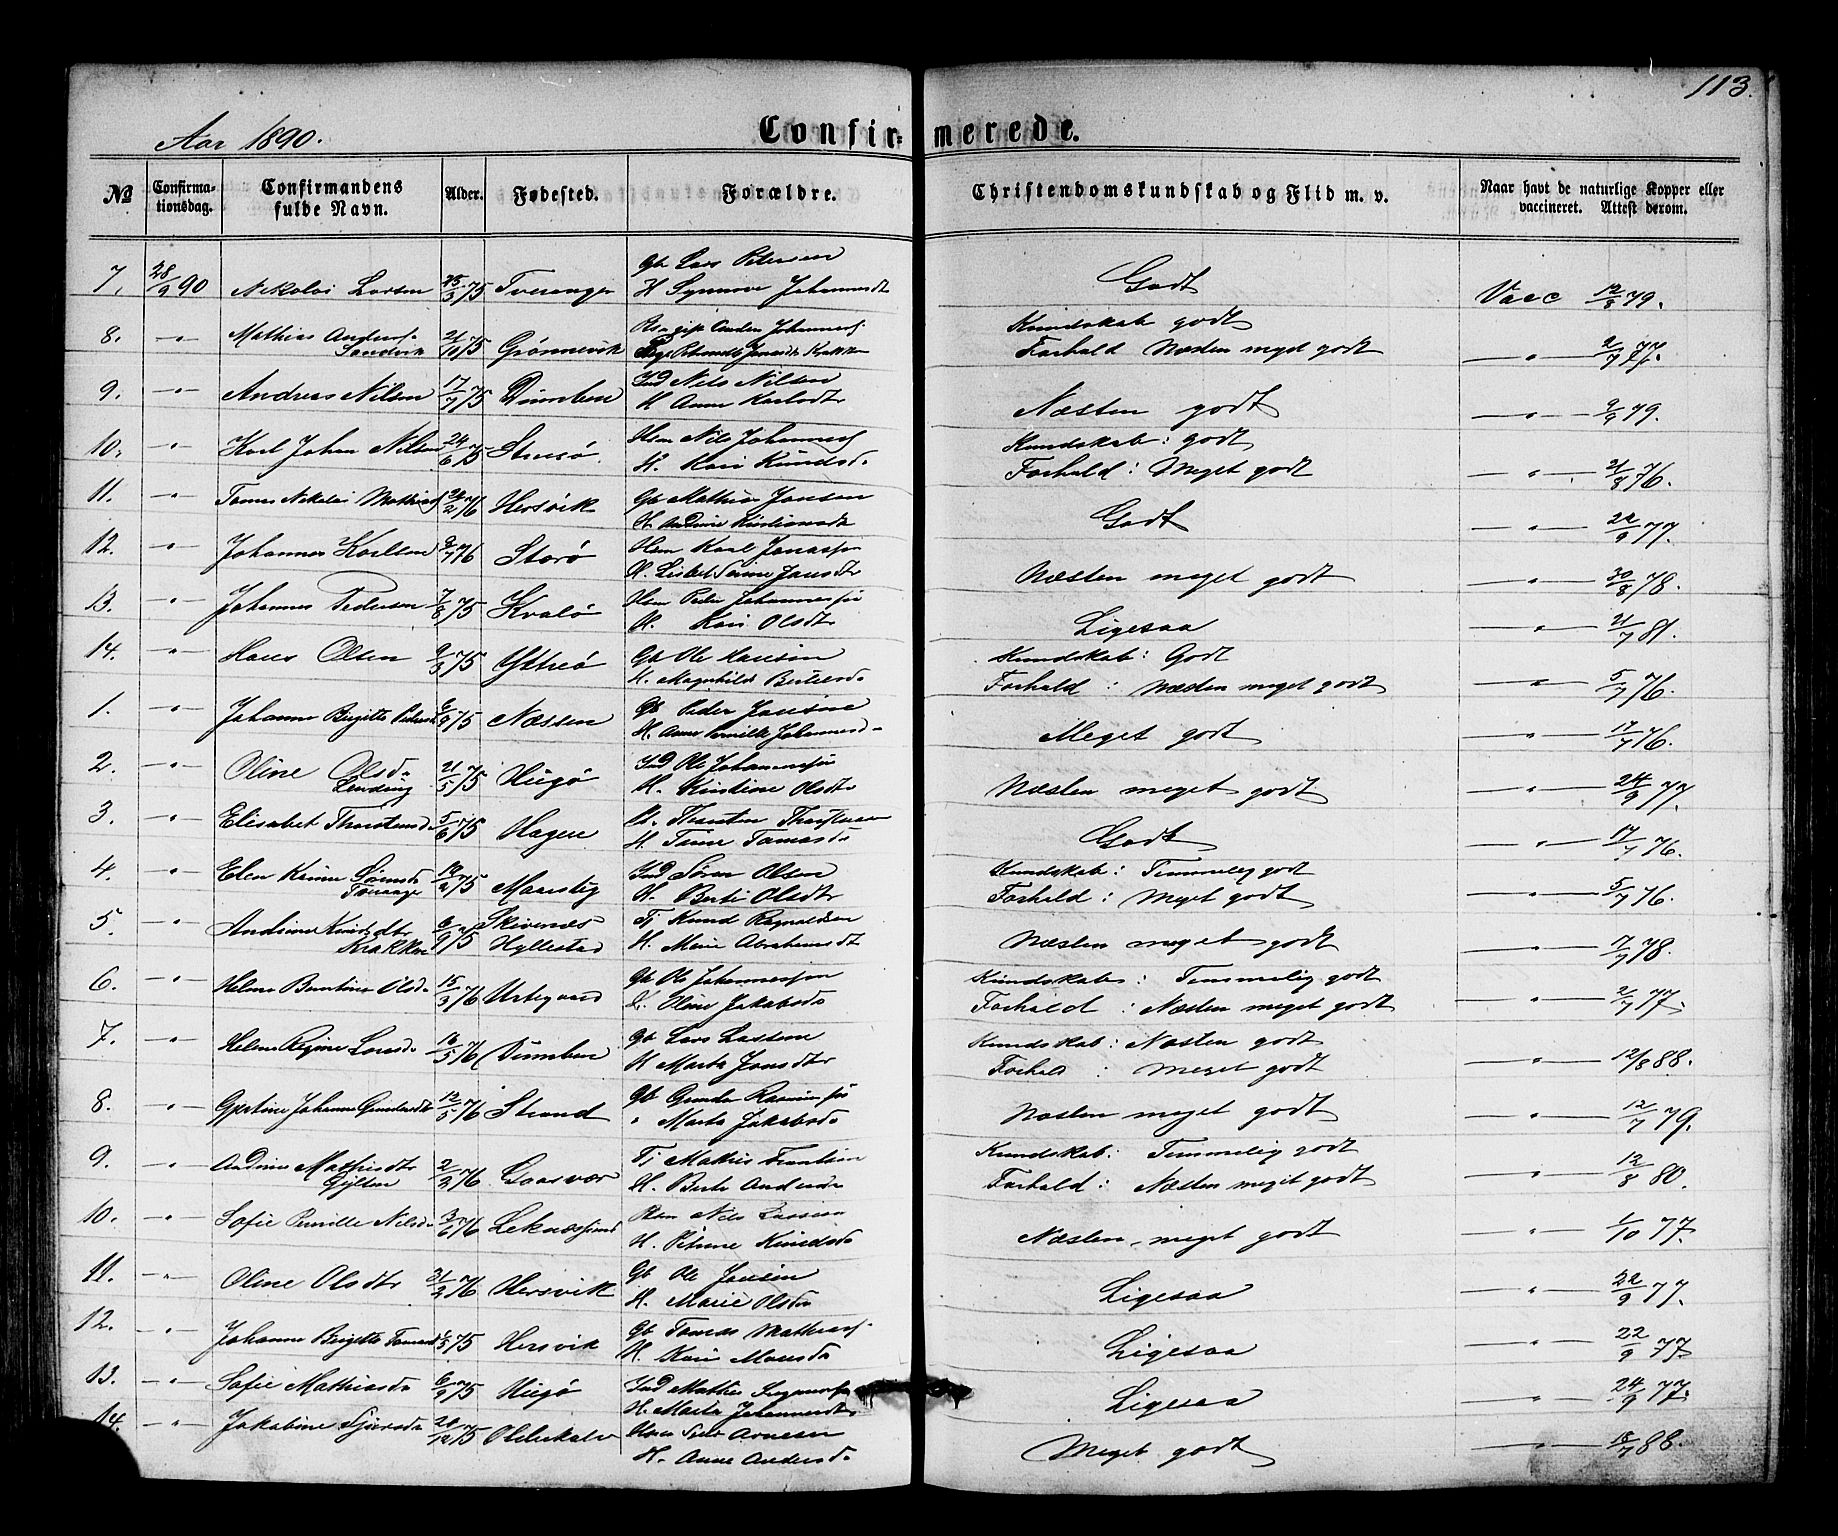 113.
Aar 1890.
Confirmerede.
No
Confirmationsdag.
Confirmandens fulde Navn.
Alder.
Fødested.
Forældre.
Christendomskundskab og Flid m. v.
Naar havt de naturlige Kopper eller vaccineret. Attest derom.
7. 28/9 90 Nikolai Larsen 25/3 75 Gb Lars Petersen
H Synnøve Johannesdt Godt Vacc 12/8 79.
8. -"- Mathias Anders. Sandvik 21/10 75 Grønnevik Johannes.
Kundskab godt
Forhold Næsten meget godt -"- 2/7 77.
9. -"- Andreas Nilsen 17/7 75 Dumben Ind Nils Nilsen
H Anne Karlsdtr Næsten godt -"- 9/9 79.
10. -"- Karl Johan Nilsen 24/6 75 Husm Nils Johannes.
H. Kari Knudsd. Kundskab: godt
Forhold: Meget godt -"- 21/8 76.
11. -"- Tomas Nikolai Mathias. 24/2 76 Hersvik Gb Mathias Jansen
H. Andrine Kristiansdt Godt -"- 22/9 77.
12. -"- Johannes Karlsen 9/7 76 Storø Hsm Karl Jonass.
H. Lisbet Serine Jansdtr Næsten meget godt -"- 30/8 78.
13. -"- Johannes Pedersen 7/8 75 Kvalø Hsm Peder Johannessen
H. Kari Olsdtr Ligesaa -"- 21/7 81.
14. -"- Hans Olsen 9/3 75 Ytrø Gb Ole Hansen
H. Magnhild Kundskab: Godt
Forhold: Næsten meget godt -"- 5/7 76.
1. -"- Johanne Birgitte Pedersd 75 Næssen Gb Peder Jansen
H. Anne Pernille Johannesd. Meget godt -"- 17/7 76.
2. -"- Oline Olsd. 21/5 75 Hugø Ind Ole Johannessen
H. Kristine Olsdtr Næsten meget godt -"- 24/9 77.
3. -"- Elisabet Thorstensd. 5/6 75 Hagen Thorsten
H. Tomasd. Godt -"- 17/7 76.
4. -"- Elen Sørensd. Tveranger 75 Maastig Ind Søren Olsen
H. Berte Olsdtr Kundskab: Temmelig godt
Forhold: Meget godt -"- 5/7 76.
5. -"- Andrine Knudsdtr Krakken 6/9 75 Skivenes Hyllestad Tj Knud Ragnaldsen
H. Marie Abrahamsdt Næsten meget godt -"- 17/7 78.
6. -"- Helene Berntine Olsd. 15/3 76 Utegaard Gb Ole Johannessen
Oline Jakobsd. Kundskab: Temmelig godt
Forhold: Næsten meget godt -"- 2/7 77.
7. -"- Helene Regine Larsd. 16/5 76 Dumben Gb Lars Lassen
H Marta Jonsdtr Kundskab: Næsten godt
Forhold: Meget godt -"- 12/8 88.
8. -"- Gjertine Johanne Gundersdt 12/5 76 Strand Gb Gunder
" Marta Jakobsd. Næsten meget godt -"- 12/7 79.
9. -"- Andrine Mathiasdtr 2/2 76 Gaasvær Tj Mathias
H. Berte Andersd. Kundskab: Temmelig godt
Forhold: Næsten meget godt -"- 12/8 80.
10. -"- Sofie Pernille Nilsd. 3/6 76 Leknessund Hsm Nils Lassen
H. Petrine Knudsd. Næsten meget godt -"- 1/10 77.
11. -"- Oline Olsdtr 21/2 76 Hersvik Gb Ole Jansen
H. Marie Olsd. Ligesaa -"- 22/9 77.
12. -"- Johanne Birgitte Tomasd 75 Hersvik Gb Tomas Mathias.
H. Kari Monsd. Ligesaa -"- 22/9 77.
13. -"- Sofie Mathiasd. 6/9 75 Hugø Ind Mathias
H. Marta Johannesdtr Ligesaa -"- 24/9 77.
14. -"- Jakobine 28/12 75 Arnesen
H. Anne Andersd. Meget godt -"- 18/7 88.